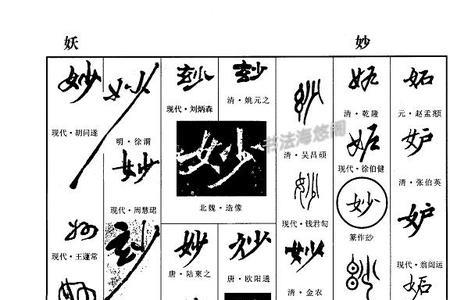 妖 妙
妙 妙 玅 玅 妬 妬
现代·胡问遂
明·徐渭
现代·刘炳森
清·姚元之
清·乾隆
元·赵孟頫
妙 妙 妬 妒
书法海悠阁
清·吴昌硕
现代·徐伯健
清·张伯英
妙
北魏·造像
现代·周慧珺
现代·钱君匋
妙
篆作玅
妒
现代·王蘧常
玅 妙 妙 妙
唐·陆柬之
唐·欧阳通
清·金农
现代·翁闿运
妬